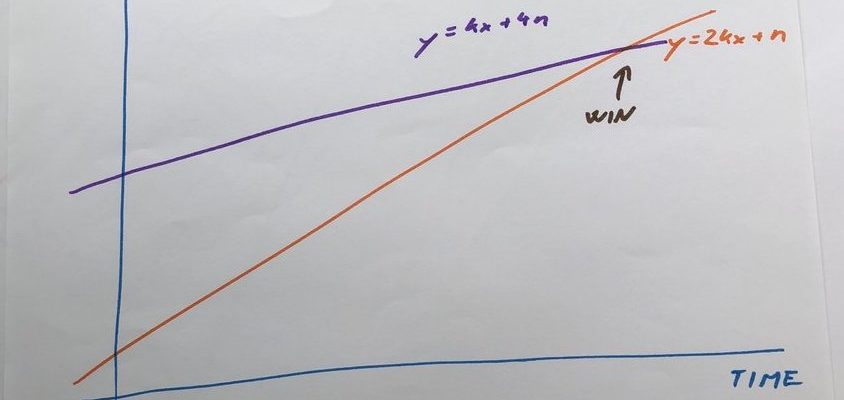 y=kx+4n
y=2kx+n
WIN
TIME